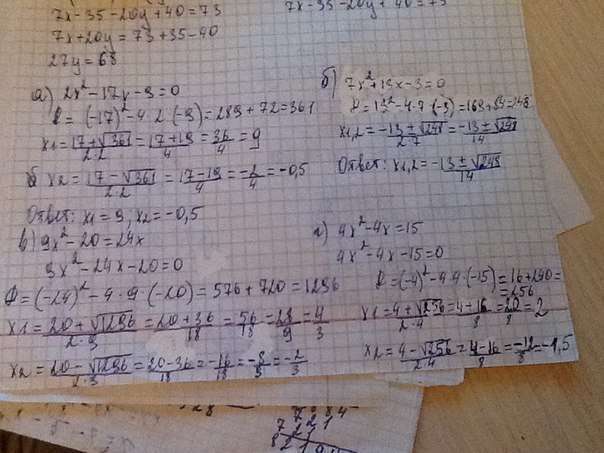 7x-35-20y+40=73
7x+20y=73+35-40
27y=68
7x-35-20y+40=73
а) 2x²-17x-9=0
D=(-17)²-4·2·(-9)=289+72=361
x1=17+√361/2·2=17+19/4=36/4=9
x2=17-√361/2·2=17-19/4=-2/4=-0,5
Ответ: x1=9, x2=-0,5
б) 7x²+13x-3=0
x1,2=-13±√248/2·7=-13±√248/14
Ответ: x1,2=-13±√248/14
в) 9x²-20=24x
9x²-24x-20=0
D=(-24)²-4·9·(-20)=576+720=1296
x1=20+√1296/2·9=20+36/18=56/18=28/9=4/3
x2=20-√1296/2·9=20-36/18=-16/18=-8/9=-2/3
г) 4x²-4x=15
4x²-4x-15=0
D=(-4)²-4·4·(-15)=16+240=
=256
x1=4+√256/2·4=4-16/8=20/8=2
x2=4-√256/2·4=4-16/8=-12/8=-1,5